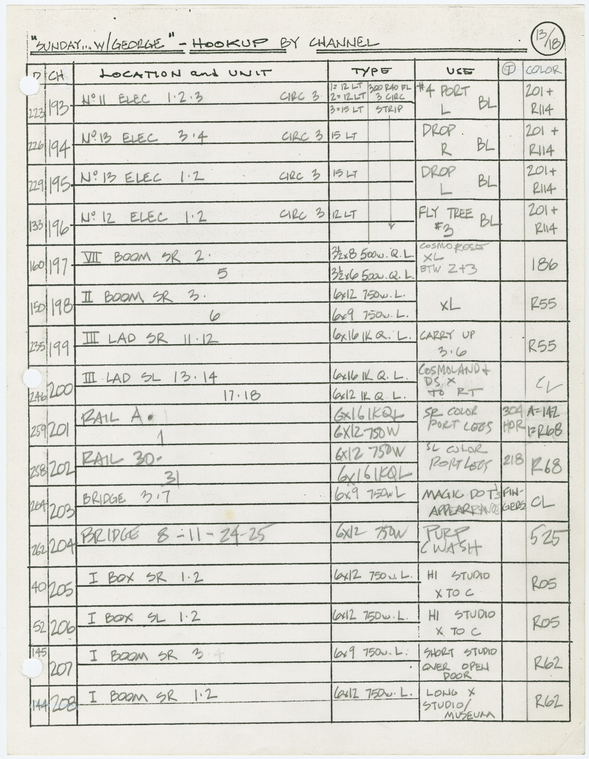 "SUNDAY... W/GEORGE" - HOOKUP BY CHANNEL 13/18
D CH LOCATION and UNIT TYPE USE T COLOR
223 193 Nº 11 ELEC 1·2·3 CIRC 3 1= 12 LT 300 R40 FL #4 PORT 201 +
2= 12 LT 3 CIRC L BL R114
3= 15 LT STRIP
226 194 Nº 13 ELEC 3·4 CIRC 3 15 LT DROP 201 +
R BL R114
229 195 Nº 13 ELEC 1·2 CIRC 3 15 LT DROP 201 +
L BL R114
133 196 Nº 12 ELEC 1·2 CIRC 3 12 LT FLY TREE 201 +
#3 BL R114
160 197 VII BOOM SR 2· 3½x8 500w. Q. L. XL 186
5 3½x6 500w. Q. L. BTW 2+3
150 198 II BOOM SR 3· 6x12 750w. L. XL R55
6 6x9 750w. L.
235 199 III LAD SR 11·12 6x16 1K Q. L. CARRY UP R55
3·6
246 200 III LAD SL 13·14 6x16 1K Q. L. COSMOLAND + CL
17·18 6x12 1K Q. L. DS X
TO RT
259 201 RAIL A· 6x16 1KQL SR COLOR 304 A=142
1 6x12 750W PORT LEGS HOR 1=R68
258 202 RAIL 30· 6x12 750W SL COLOR 218 R68
31 6x16 1KQL PORT LEGS
264 203 BRIDGE 3·7 6x9 750w L MAGIC DOTS FIN- CL
APPEARANCE GERS
262 204 BRIDGE 8-11-24-25 6x12 750W PURP 525
C WASH
40 205 I BOX SR 1·2 6x12 750w. L. HI STUDIO R05
X TO C
52 206 I BOX SL 1·2 6x12 750w. L. HI STUDIO R05
X TO C
145 207 I BOOM SR 3 6x9 750w. L. SHORT STUDIO R62
OVER OPEN
DOOR
144 208 I BOOM SR 1·2 6x12 750w. L. LONG X R62
STUDIO/
MUSEUM